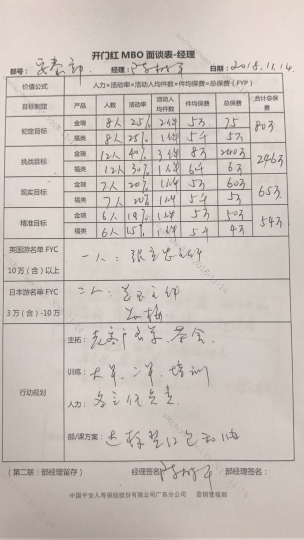 开门红 MBO 面谈表-经理
部号： 经理： 日期：2018.11.14
价值公式 人力×活动率×活动人均件数×件均保费=总保费（FYP）
目标制定 产品 人数 活动率 活动人均件数 件均保费 总保费 合计总保费
初定目标 金瑞 8人 25% 2件 5万 75 80万
福类 8人 25% 1件 5千 5万
挑战目标 金瑞 12人 40% 3件 8万 240万 246万
福类 12人 30% 1件 6千 6万
现实目标 金瑞 7人 20% 1件 5万 60万 65万
福类 7人 20% 1件 5千 5万
精准目标 金瑞 6人 19% 1件 5万 50万 54万
福类 6人 15% 1件 5千 4万
英国游名单 FYC
10 万（含）以上
一人：
日本游名单 FYC
3 万（含）-10万
二人：
行动规划
主拓：老客户 茶会
训练： 培训
人力：各主任负责
部/课方案：达标
（第二联：部经理留存） 经理签名： 部经理签名：
中国平安人寿保险股份有限公司广东分公司 营销管理部